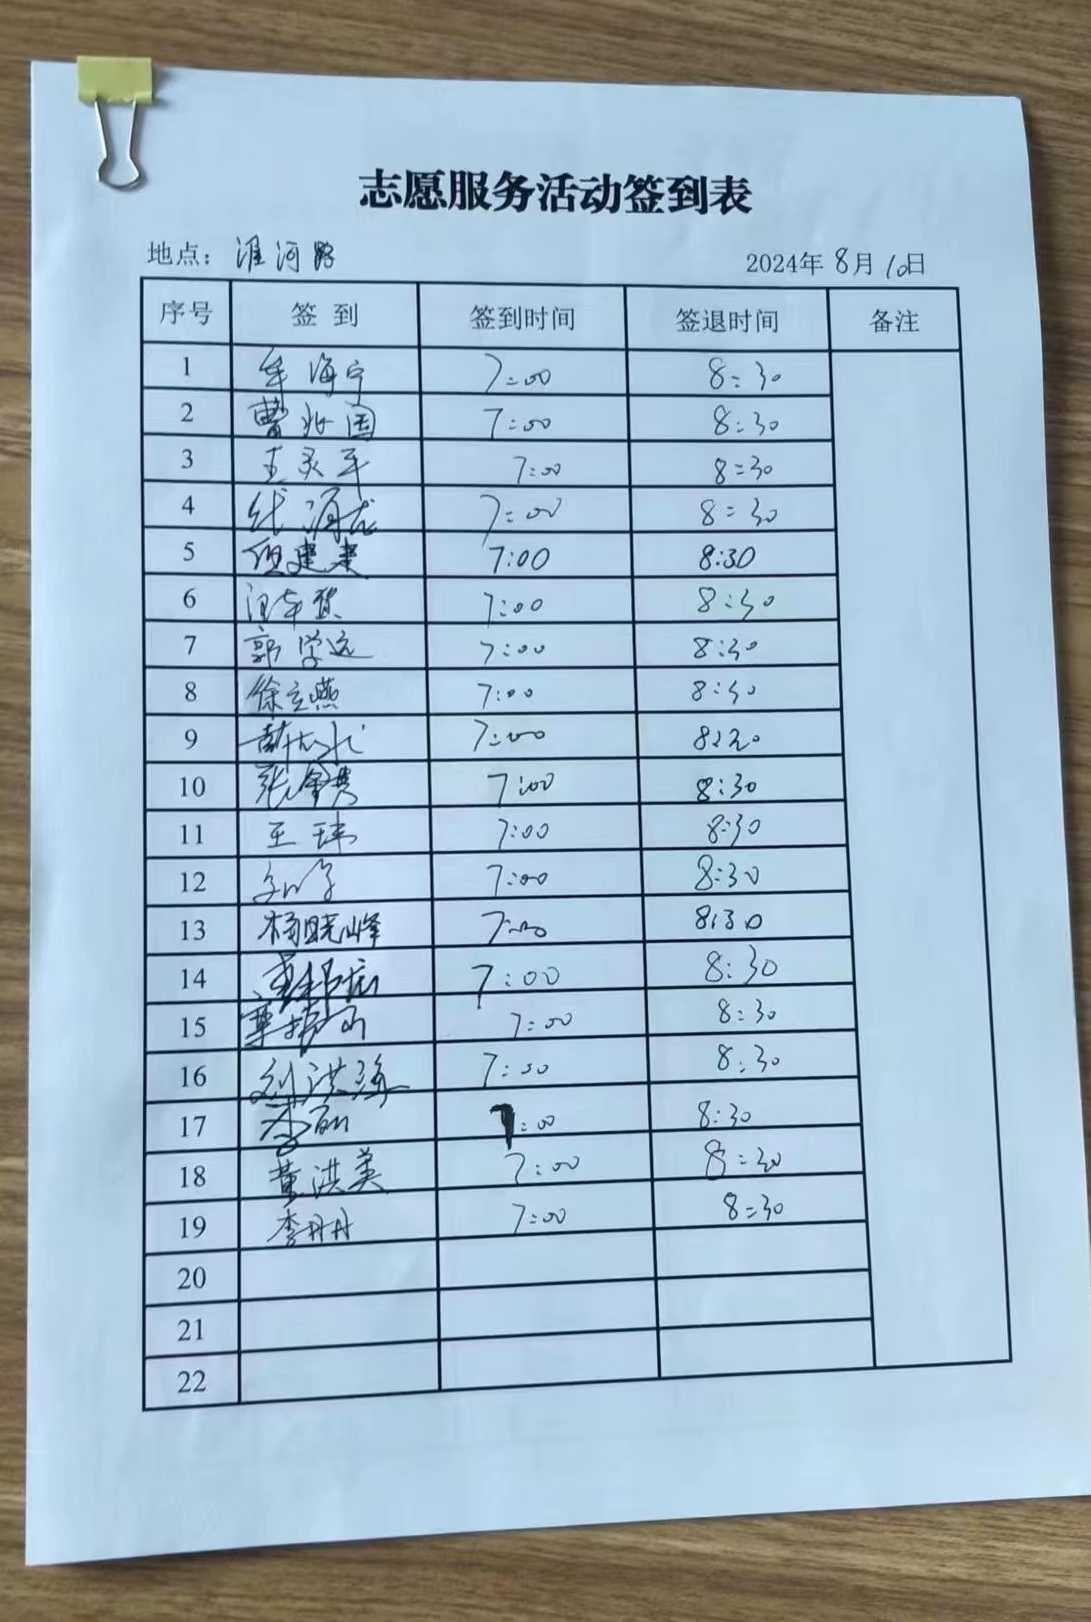 志愿服务活动签到表
地点：淮河路 2024年8月10日
序号 签到 签到时间 签退时间 备注
1 牟海宁 7:00 8:30
2 曹兆国 7:00 8:30
3 7:00 8:30
4 7:00 8:30
5 7:00 8:30
6 7:00 8:30
7 郭学远 7:00 8:30
8 徐立燕 7:00 8:30
9 7:00 8:30
10 张金贵 7:00 8:30
11 王玮 7:00 8:30
12 7:00 8:30
13 杨晓峰 7:00 8:30
14 7:00 8:30
15 7:00 8:30
16 刘洪海 7:00 8:30
17 李丽 7:00 8:30
18 董洪美 7:00 8:30
19 李丹丹 7:00 8:30
20
21
22